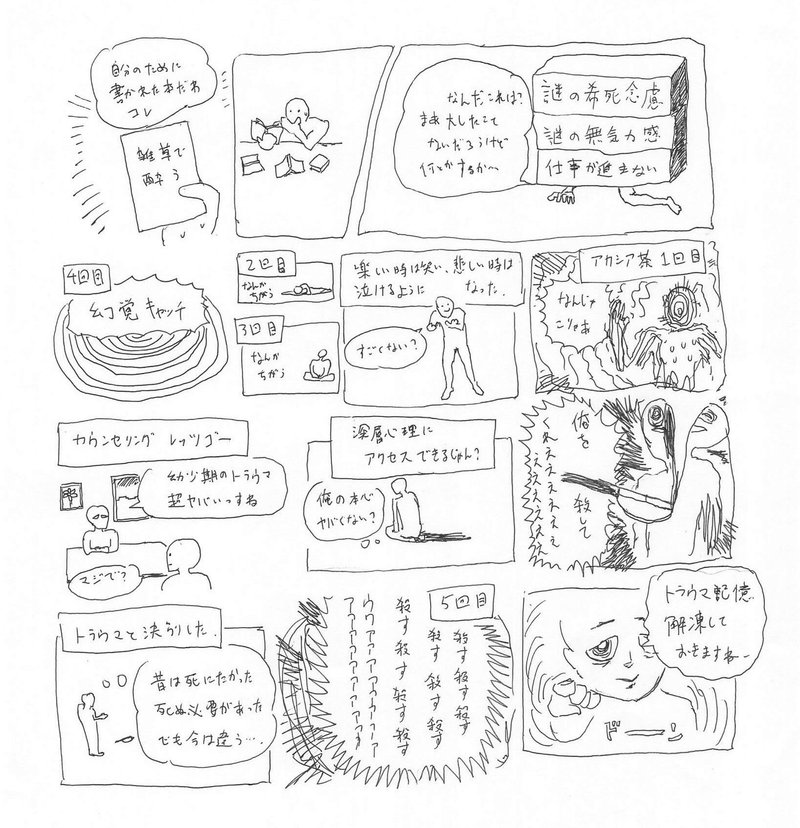 謎の希死念慮
謎の無気力感
仕事が進まない
なんだこれは?
まあ大したこと
ないだろうけど
何とかするか〜
自分のために
書かれた本だわ
コレ
雑草で
酔う
アカシア茶1回目
なんじゃ
こりゃあ
楽しい時は笑い、悲しい時は
泣けるように なった。
すごくない?
2回目
なんか
ちがう
3回目
なんか
ちがう
4回目
幻覚キャッチ
俺を 殺して
くれえええええええ
ええええええ
深層心理に
アクセスできるじゃん?
俺の本心
ヤバくない?
カウンセリング レッツゴー
幼少期のトラウマ
超ヤバいっすね
マジで?
トラウマ記憶
解凍して
おきますね〜
ドーン
5回目
殺す 殺す 殺す
殺す 殺す 殺す
殺す 殺す 殺す 殺す
トラウマと決別した。
昔は死にたかった
死ぬ必要があった
でも今は違う…。